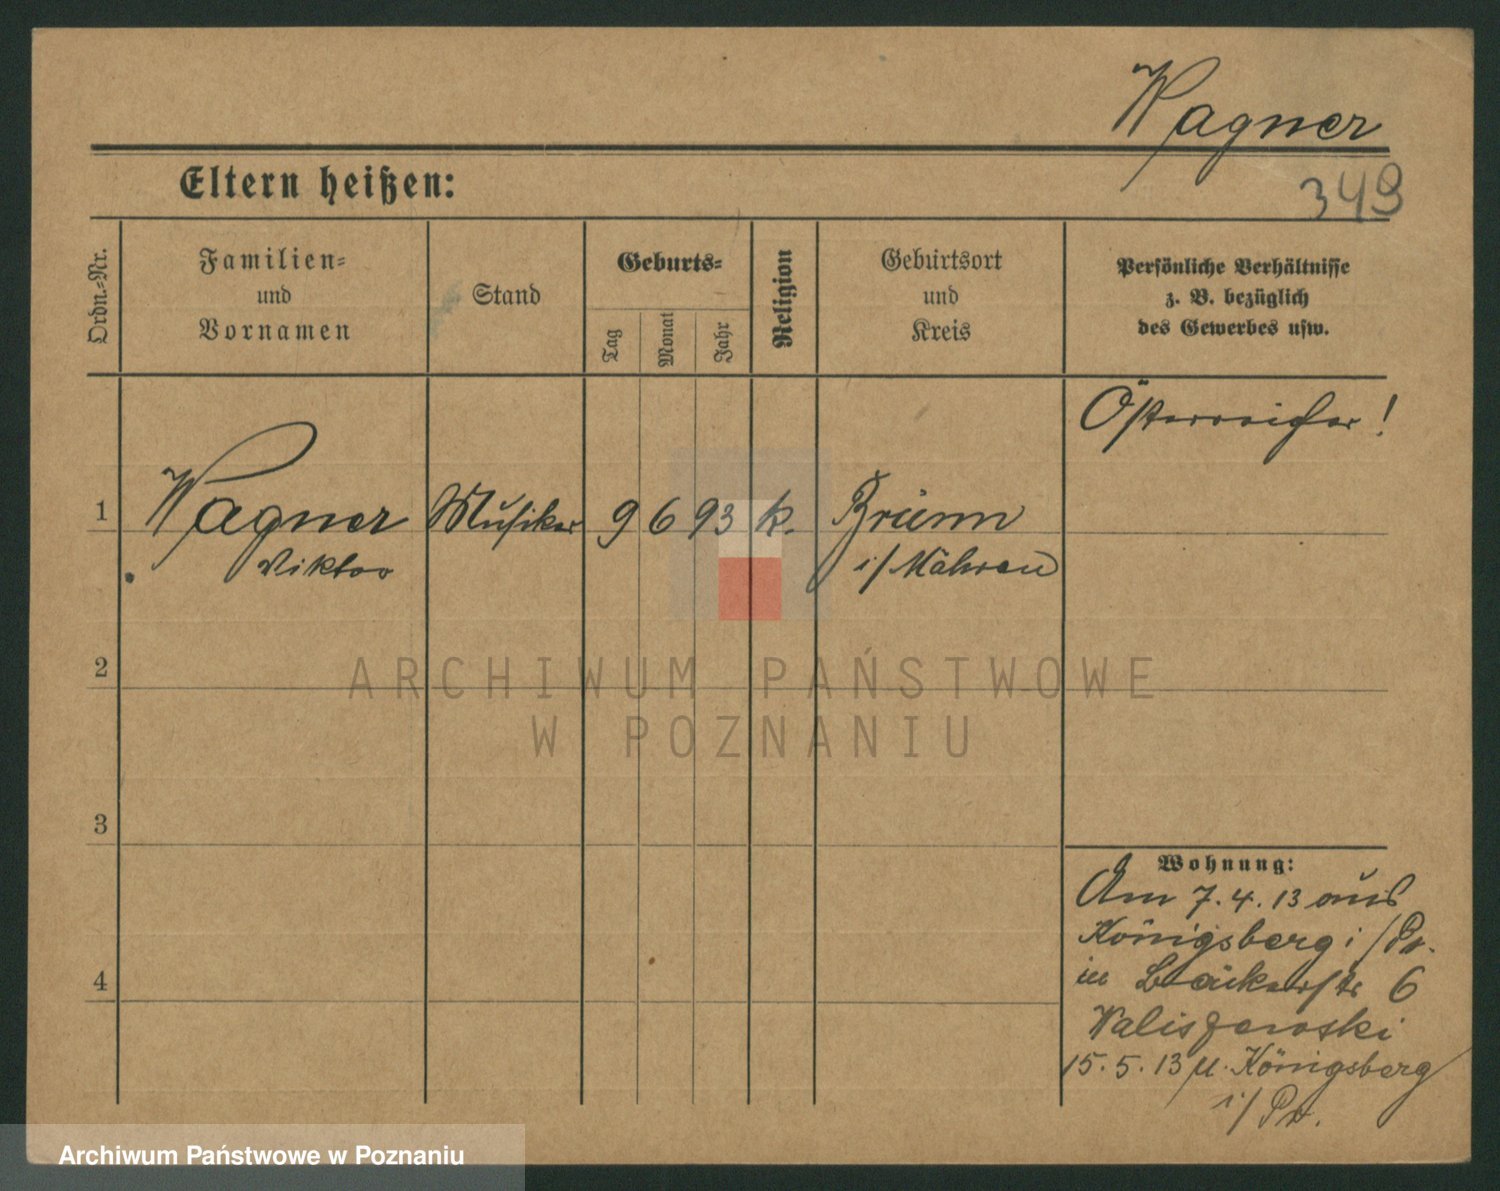 Wagner
349
Eltern heißen:
Ordn.-Nr.
Familien-
und
Vornamen
Stand
Geburts-
Tag
Monat
Jahr
Religion
Geburtsort
und
Kreis
Persönliche Verhältnisse
z. B. bezüglich
des Gewerbes usw.
Österreicher!
1 Wagner Musiker 9 6 93 k. Brünn
Viktor i/Mähren
2
3
4
Wohnung:
Am 7.4.13 aus
Königsberg i/Pr.
in Bäckerstr 6
Waliszewski
15.5.13 n. Königsberg
i/Pr.
ARCHIWUM PAŃSTWOWE
W POZNANIU
Archiwum Państwowe w Poznaniu